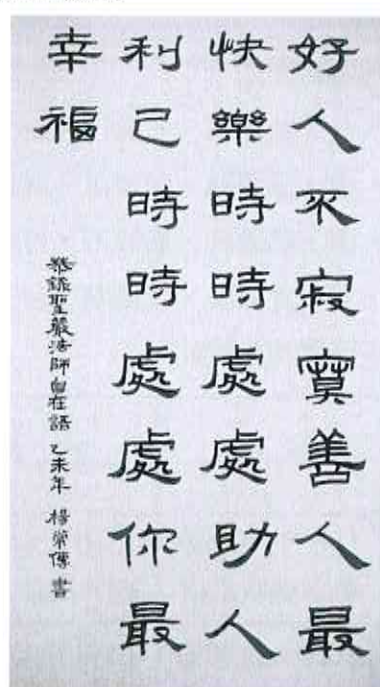 好人不寂寞善人最
快樂時時處處助人
利己時時處處你最
幸福
恭錄聖嚴法師自在語 乙未年 楊常傳 書